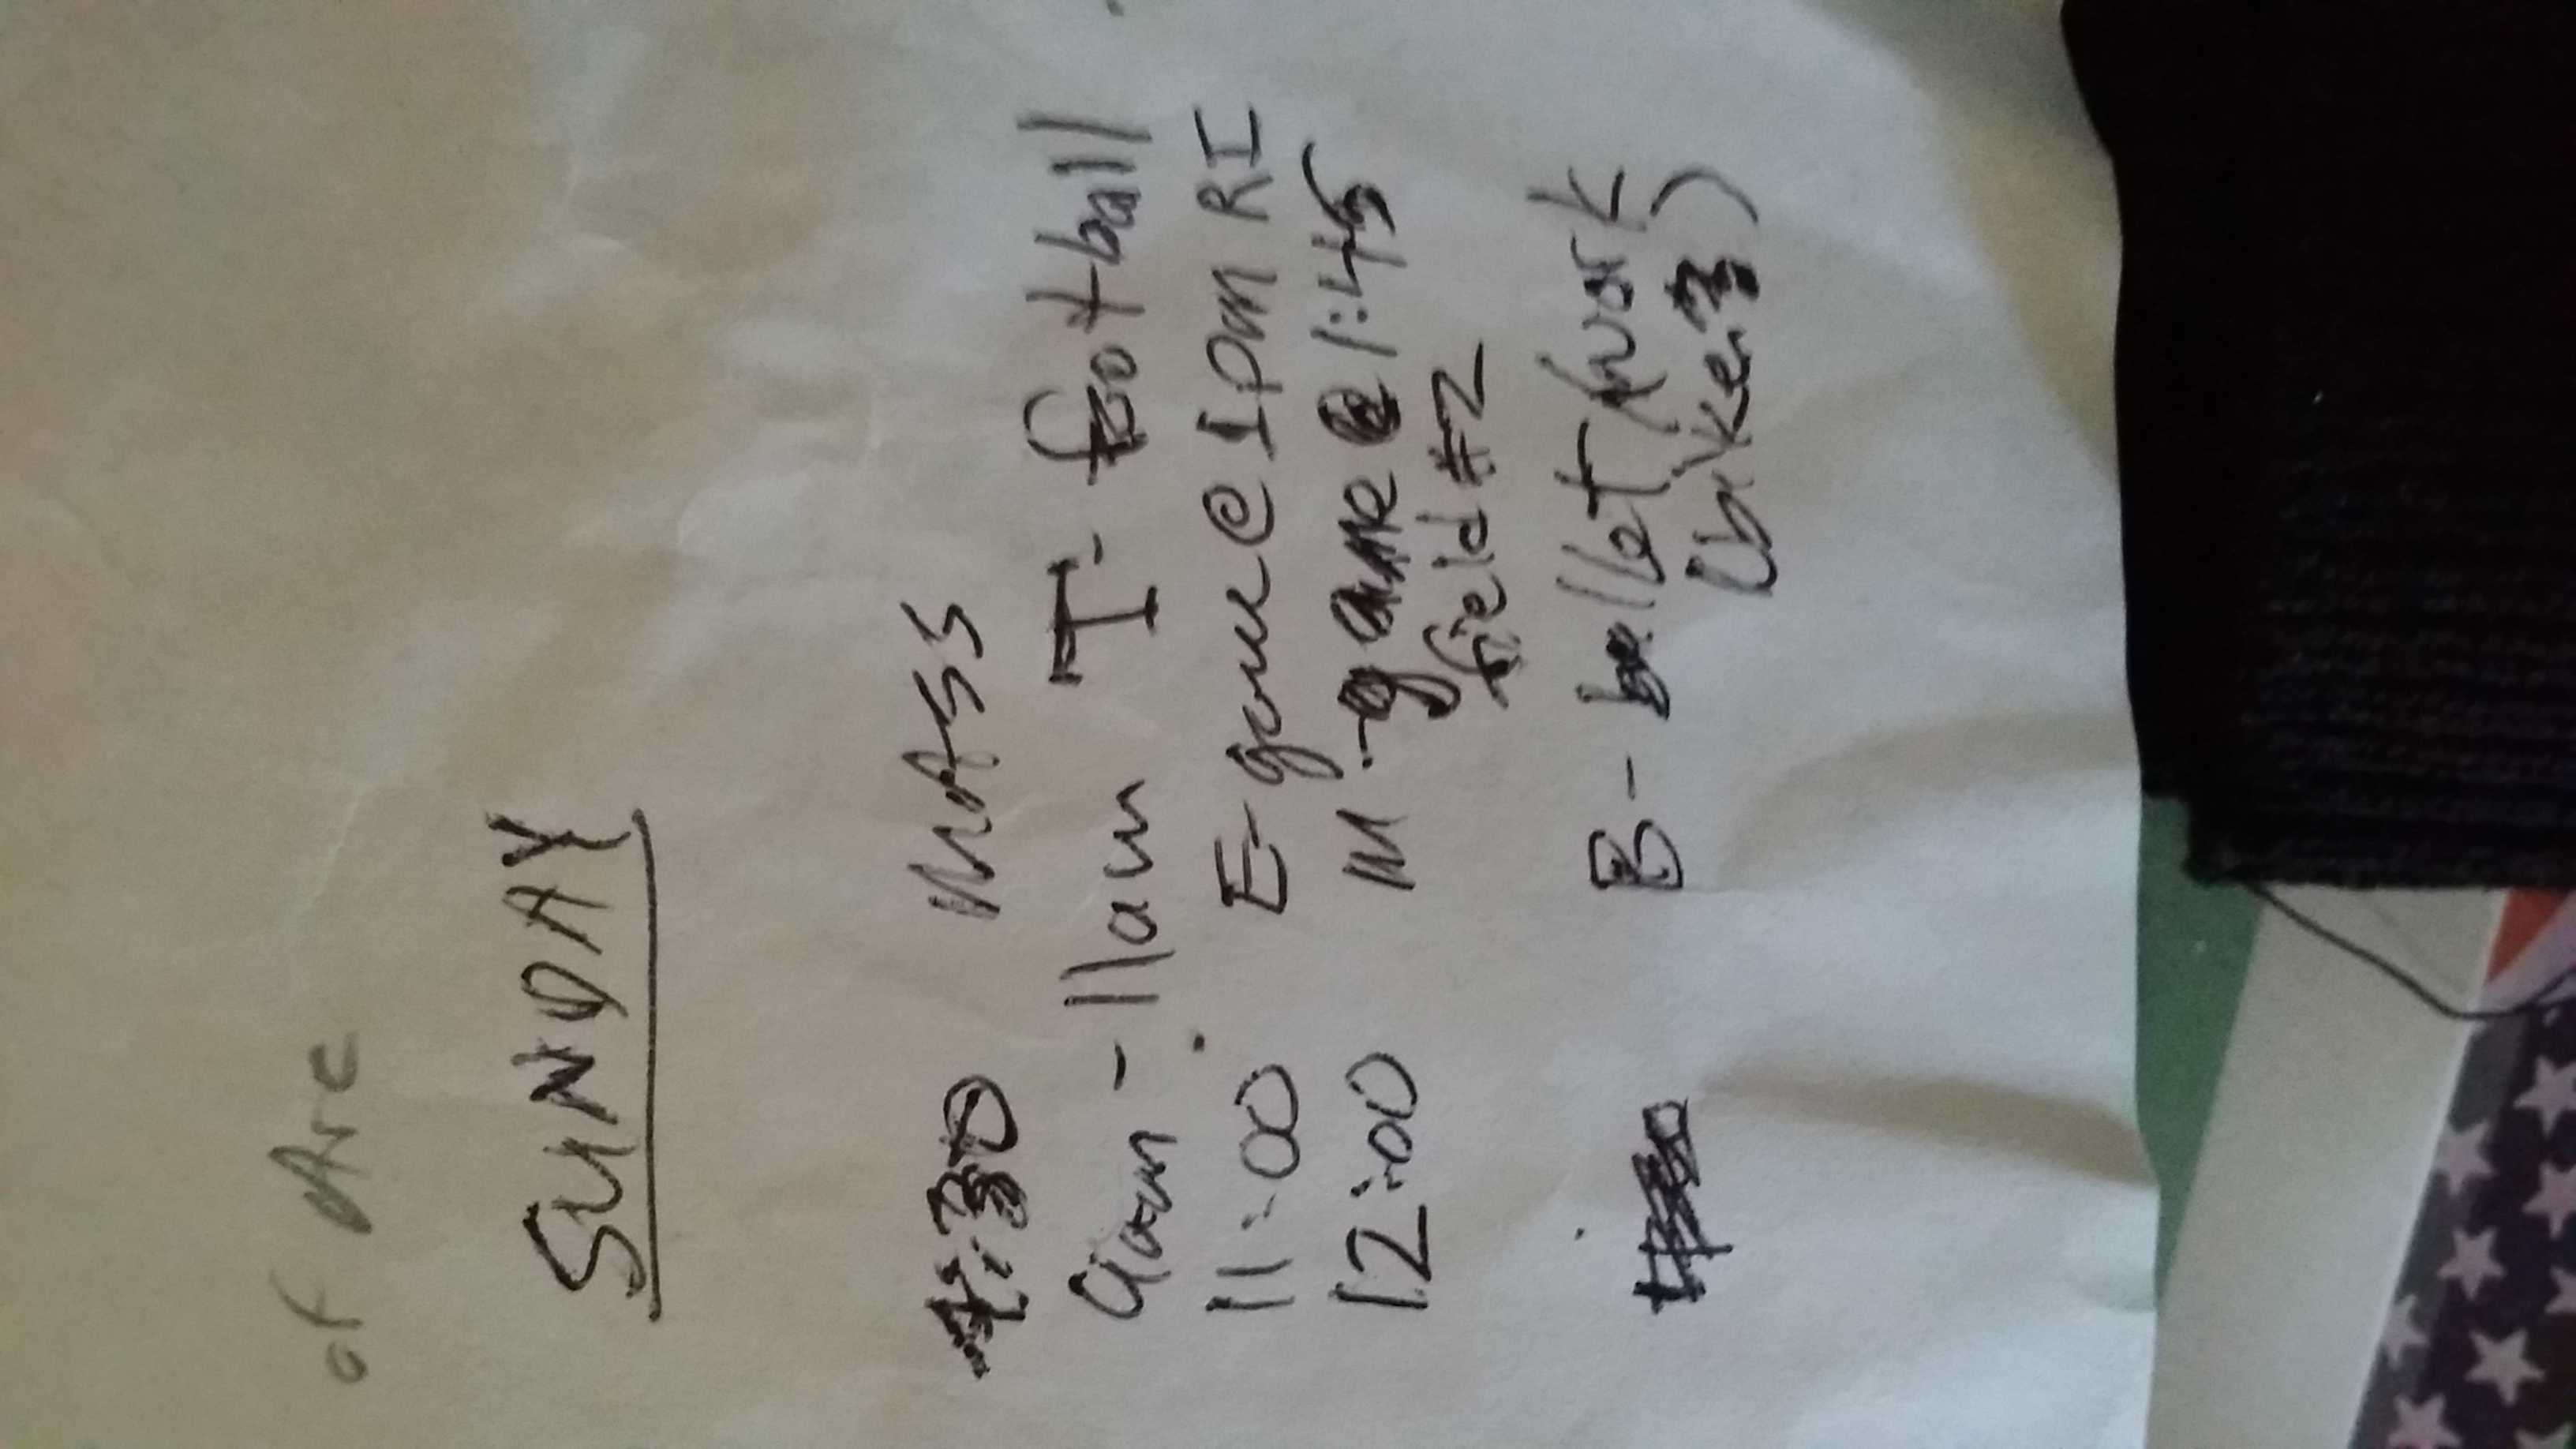 of Arc
SUNDAY
:30 MASS
9am - 11am I - football
11:00 E- game @ 1pm RI
12:00 M - game @ 1:45
field #2
B - ballet/work